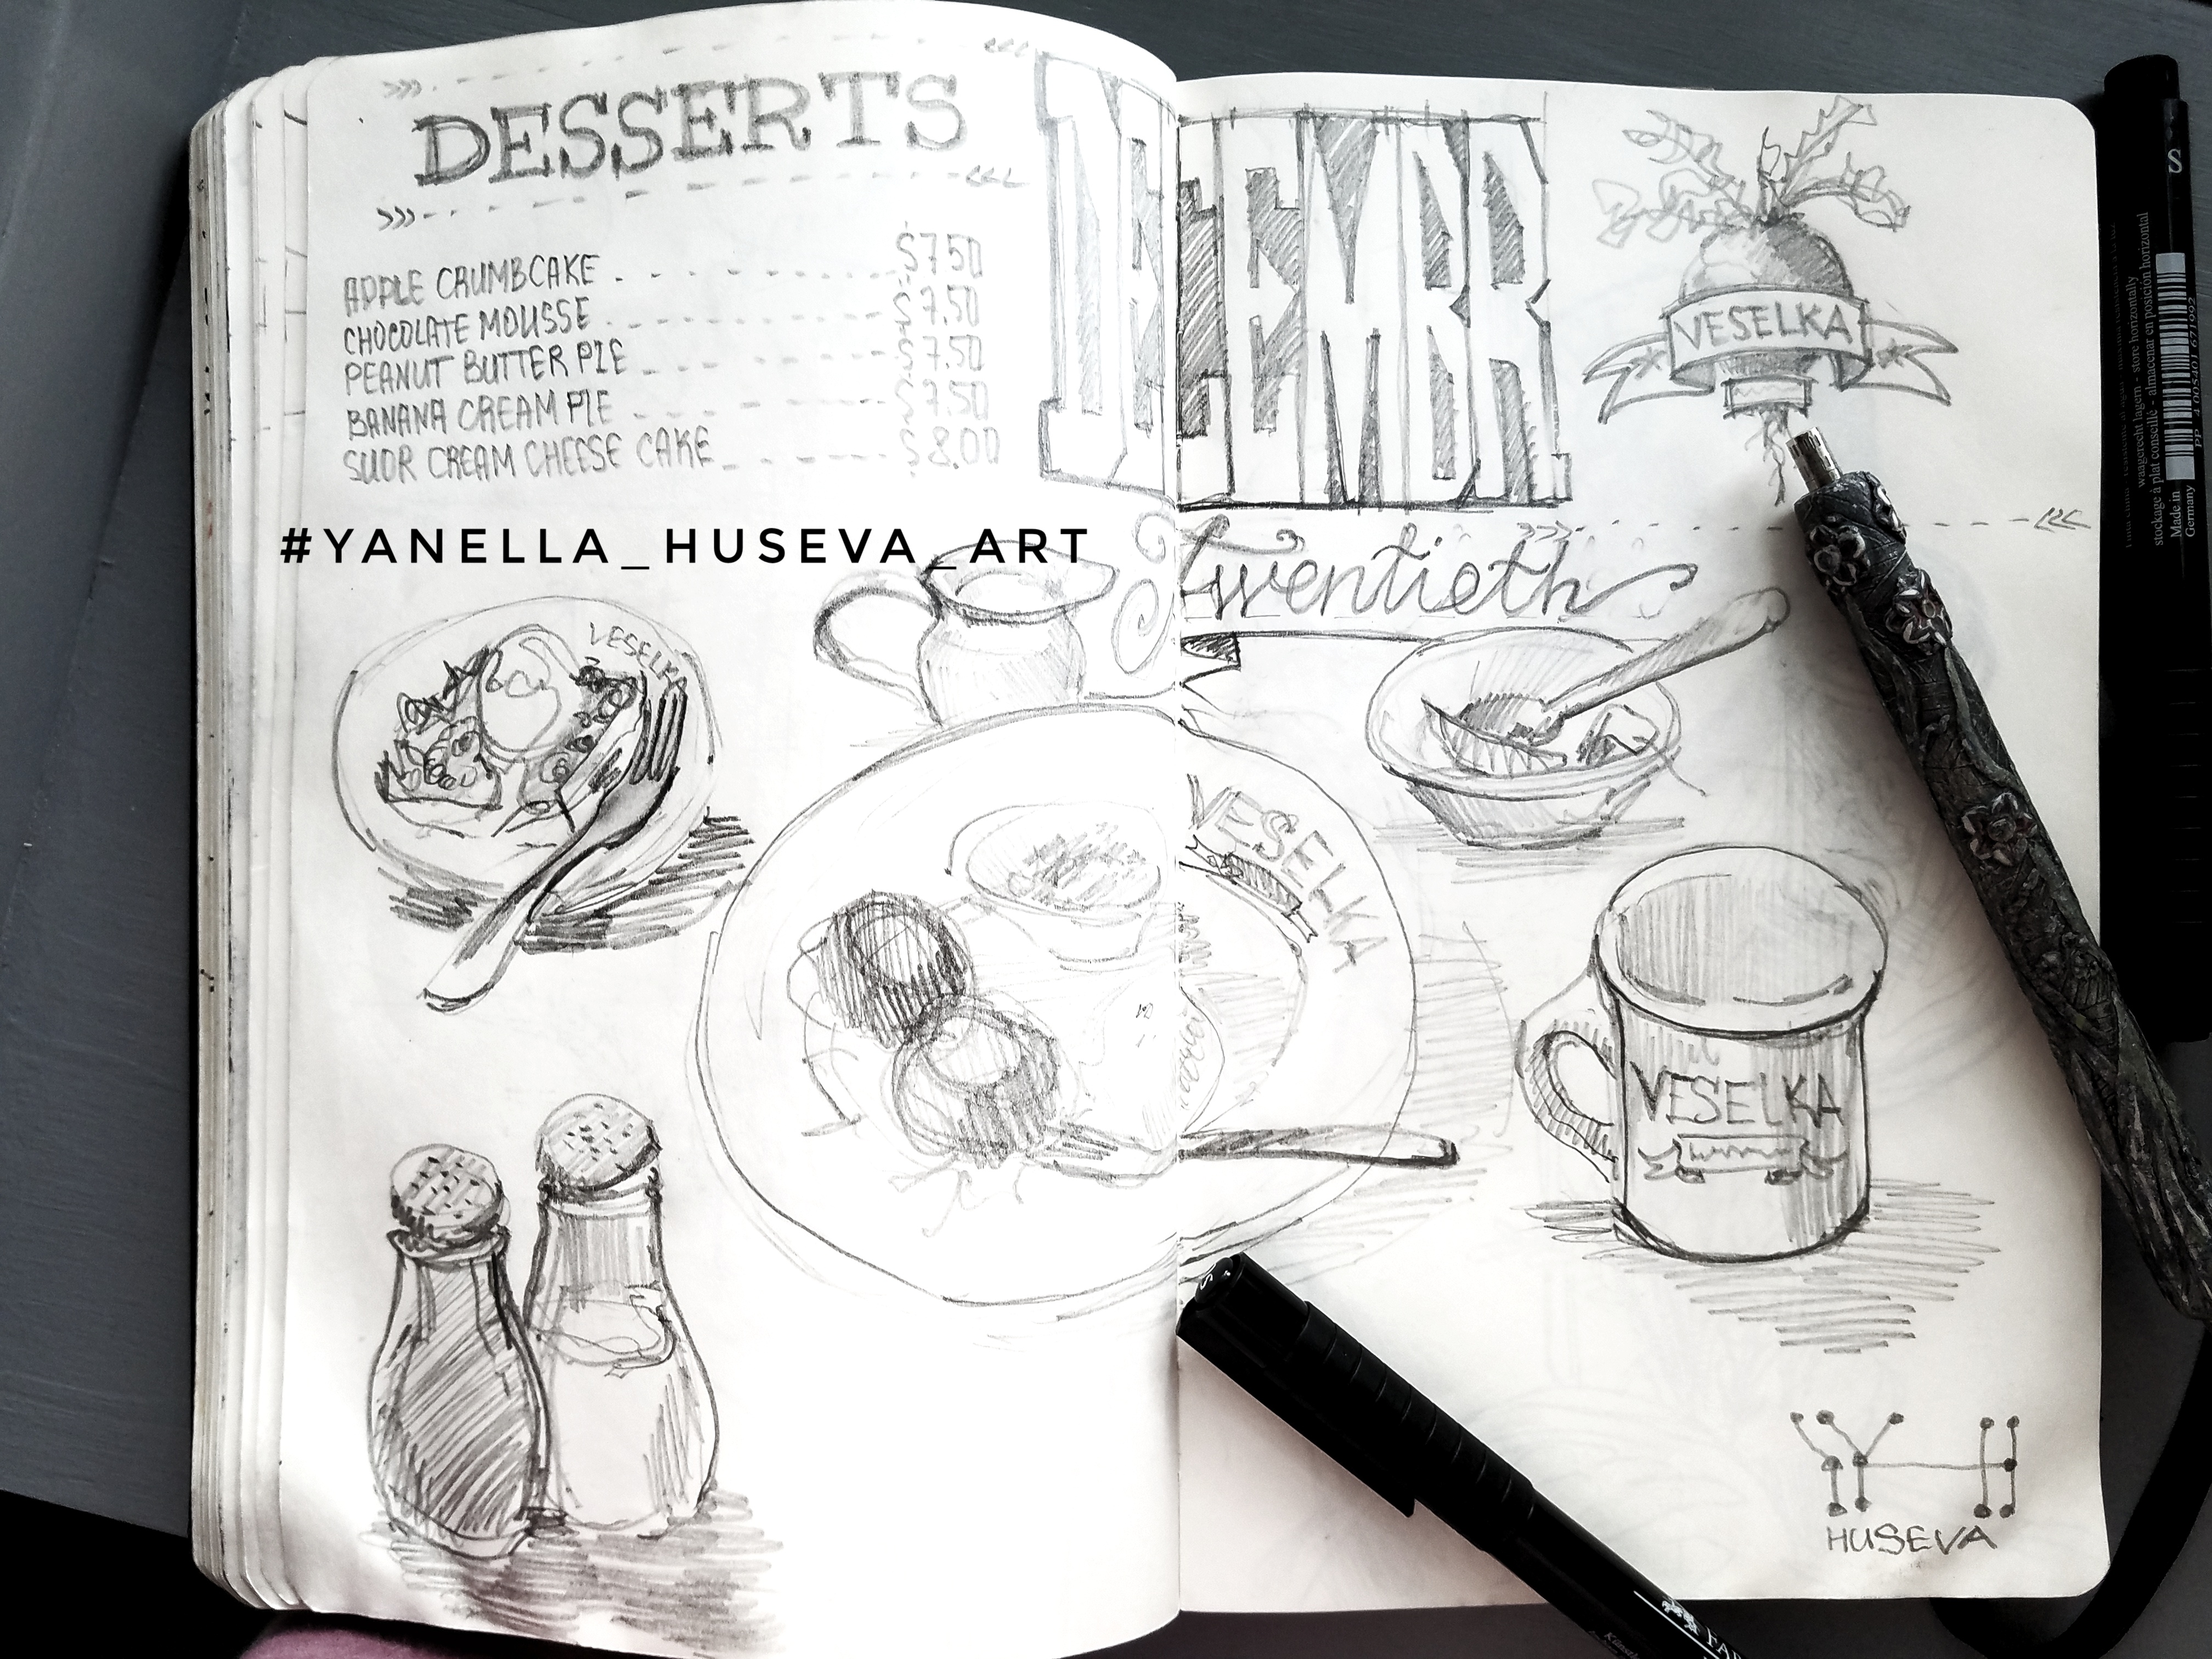 DESSERTS
APPLE CRUMBCAKE $7.50
CHOCOLATE MOUSSE $7.50
PEANUT BUTTER PIE $7.50
BANANA CREAM PIE $7.50
SUOR CREAM CHEESE CAKE $8.00
#YANELLA_HUSEVA_ART
DECEMBR.
Twentieth
VESELKA
VESELKA
VESELKA
VESELKA
Y H
HUSEVA
S
store horizontally
waagerecht lagern - store horizontally
stockage à plat conseillé - almacenar en posición horizontal
Made in
Germany
PP 4 005401 671992